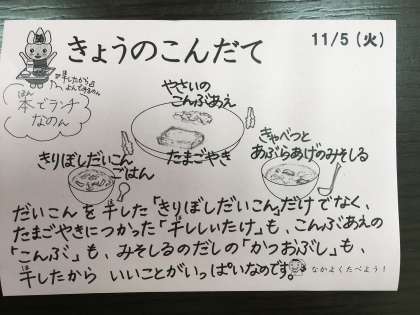 きょうのこんだて
11/5（火）
干したから
よんできるのん
本でランチ
ほん
なのん
やさいの
こんぶあえ
たまごやき
きりぼしだいこん
ごはん
きゃべつと
あぶらあげのみそしる
だいこんを干した「きりぼしだいこん」だけでなく、
たまごやきにつかった「干ししいたけ」も、こんぶあえの
「こんぶ」も、みそしるのだしの「かつおぶし」も、
干したから いいことがいっぱいなのです。
なかよくたべよう！